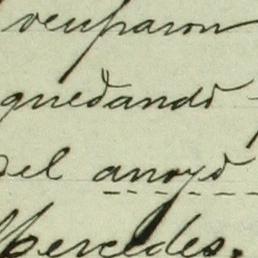 ocuparon
quedando
del arroyo
Mercedes.